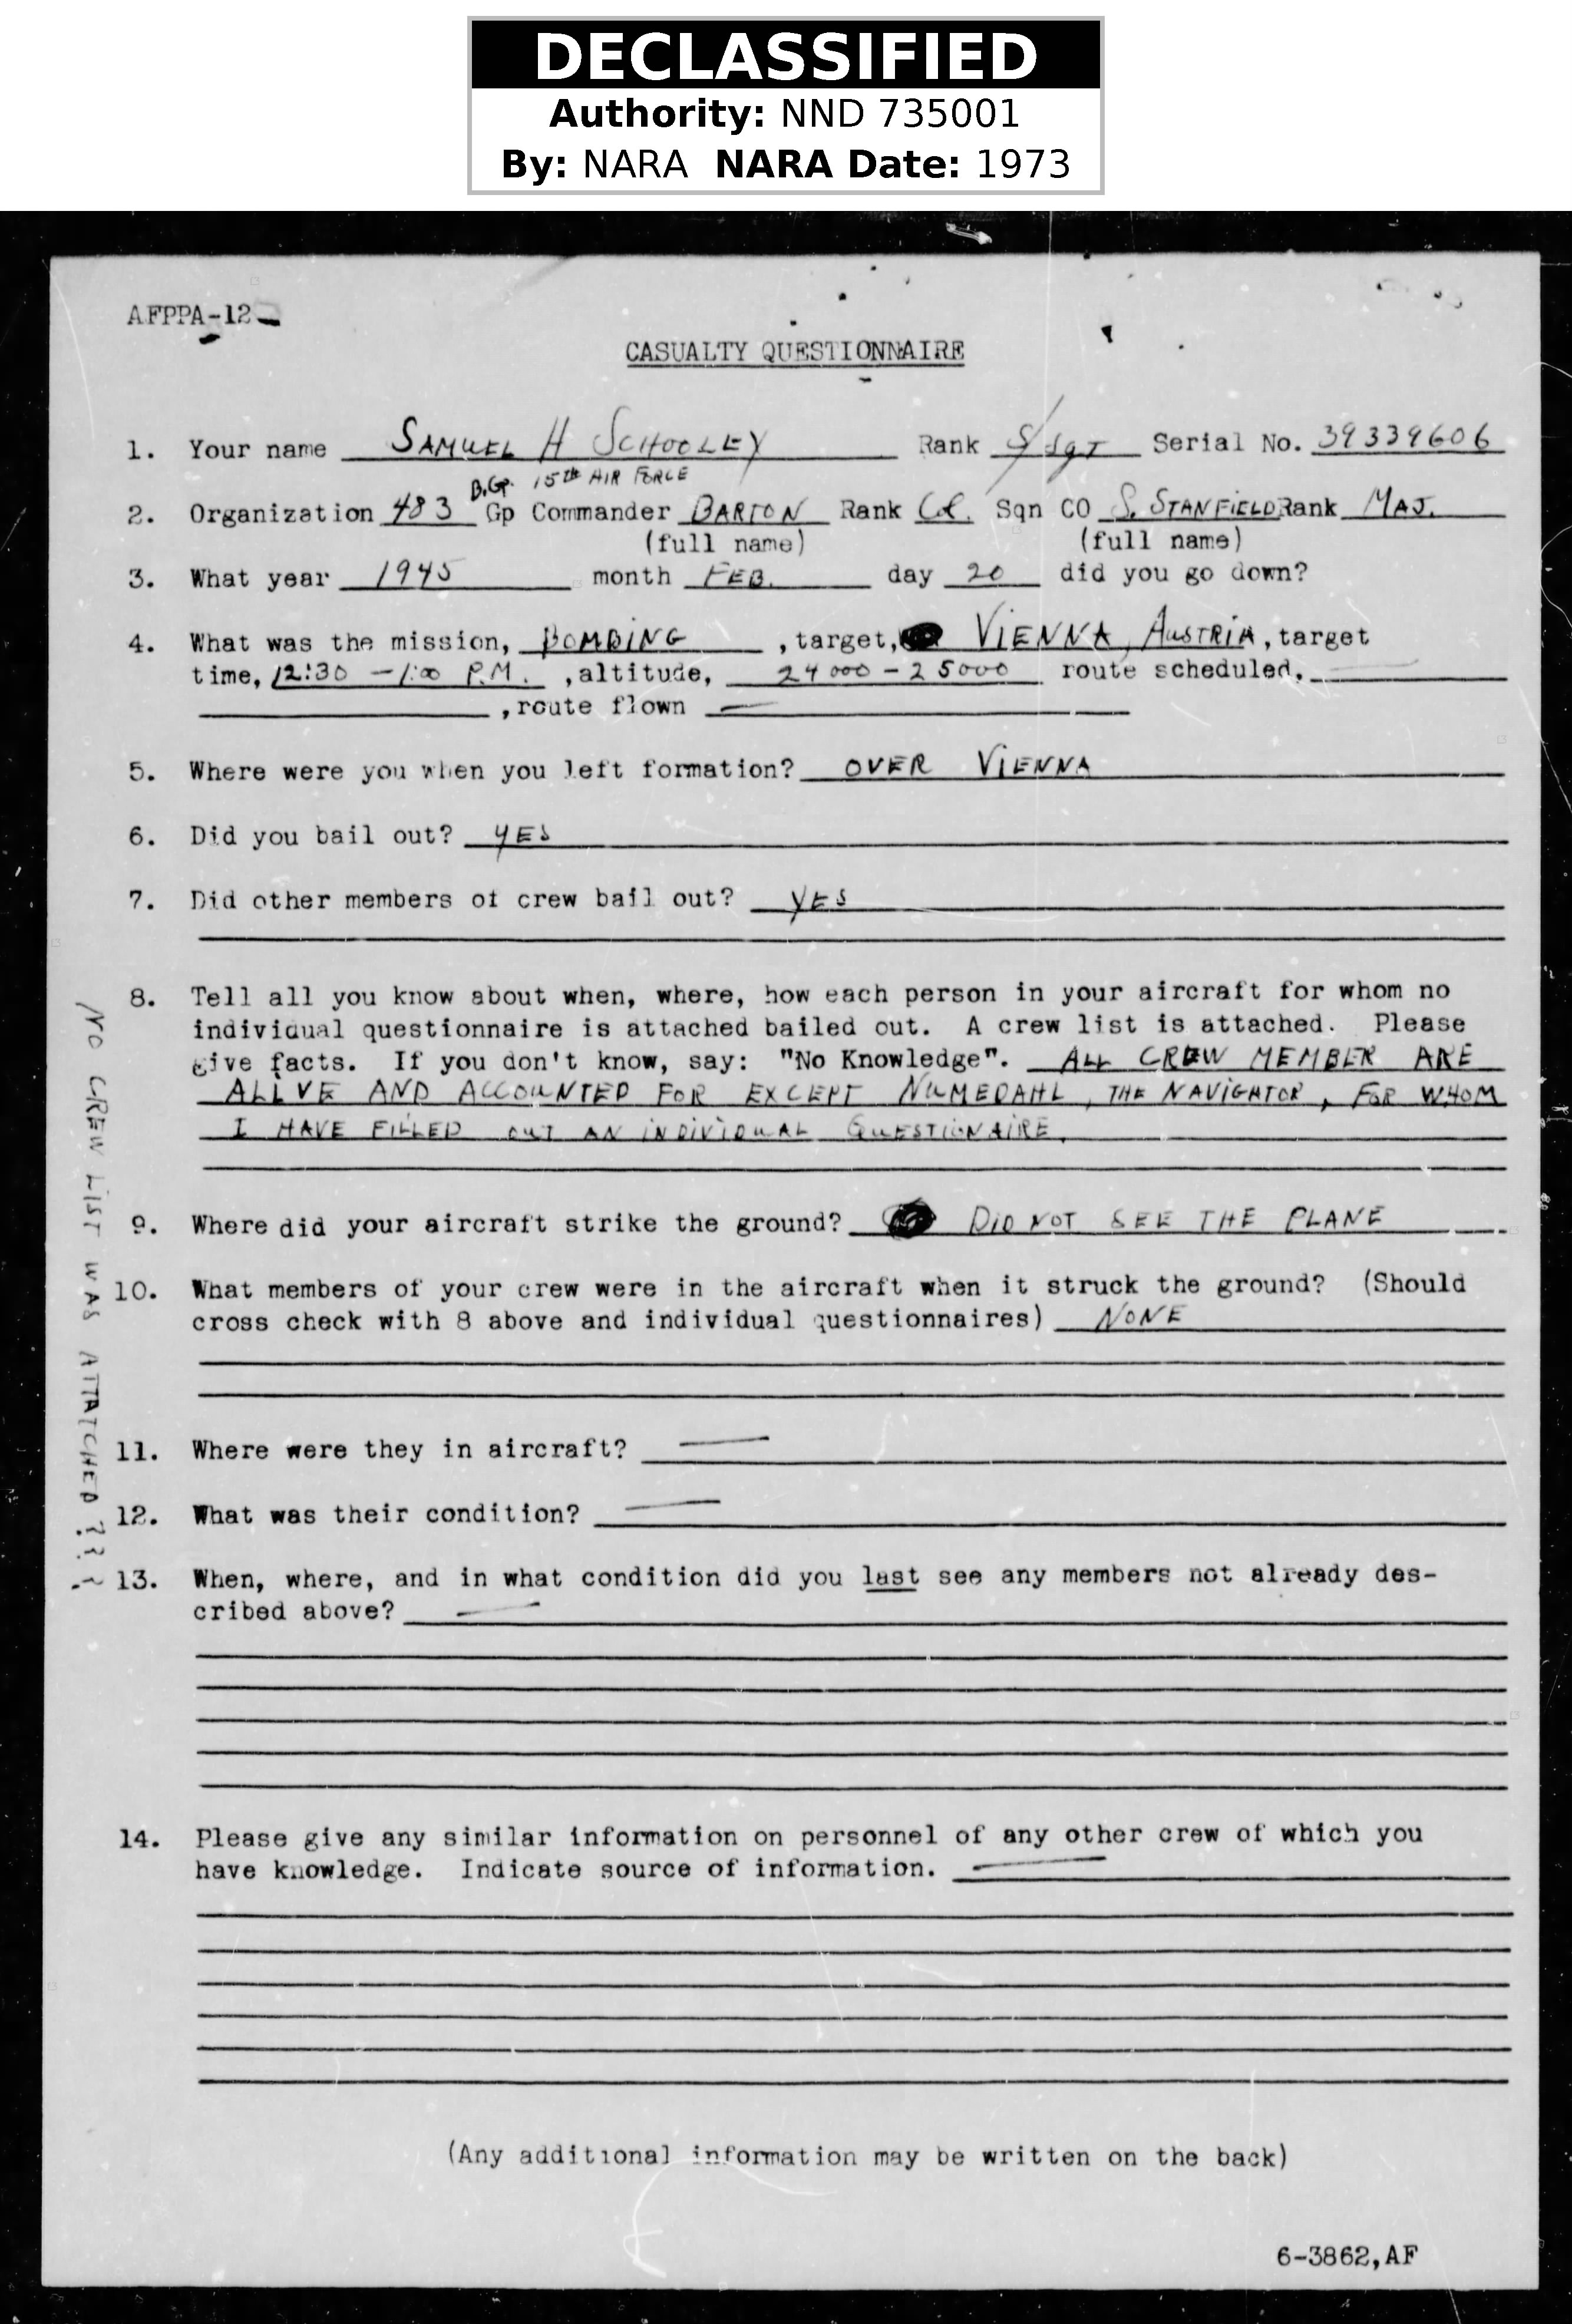 DECLASSIFIED
Authority: NND 735001
By: NARA NARA Date: 1973
AFPPA-12
CASUALTY QUESTIONNAIRE
1. Your name SAMUEL H SCHOOLEY Rank S/Sgt Serial No. 39339606
B.Gp. 15th AIR FORCE
2. Organization 483 Gp Commander BARTON Rank Col. Sqn CO S. STANFIELD Rank MAJ.
(full name) (full name)
3. What year 1945 month FEB. day 20 did you go down?
4. What was the mission, BOMBING , target, VIENNA, AUSTRIA, target
time, 12:30 - 1:00 P.M. , altitude, 24000 - 25000 route scheduled,
, route flown
5. Where were you when you left formation? OVER VIENNA
6. Did you bail out? YES
7. Did other members of crew bail out? YES
8. Tell all you know about when, where, how each person in your aircraft for whom no
individual questionnaire is attached bailed out. A crew list is attached. Please
give facts. If you don't know, say: "No Knowledge". ALL CREW MEMBER ARE
ALIVE AND ACCOUNTED FOR EXCEPT NUMEDAHL, THE NAVIGATOR, FOR WHOM
I HAVE FILLED OUT AN INDIVIDUAL QUESTIONAIRE.
9. Where did your aircraft strike the ground? DID NOT SEE THE PLANE
10. What members of your crew were in the aircraft when it struck the ground? (Should
cross check with 8 above and individual questionnaires) NONE
11. Where were they in aircraft?
12. What was their condition?
13. When, where, and in what condition did you last see any members not already des-
cribed above?
14. Please give any similar information on personnel of any other crew of which you
have knowledge. Indicate source of information.
(Any additional information may be written on the back)
6-3862,AF
NO CREW LIST WAS ATTATCHED ???